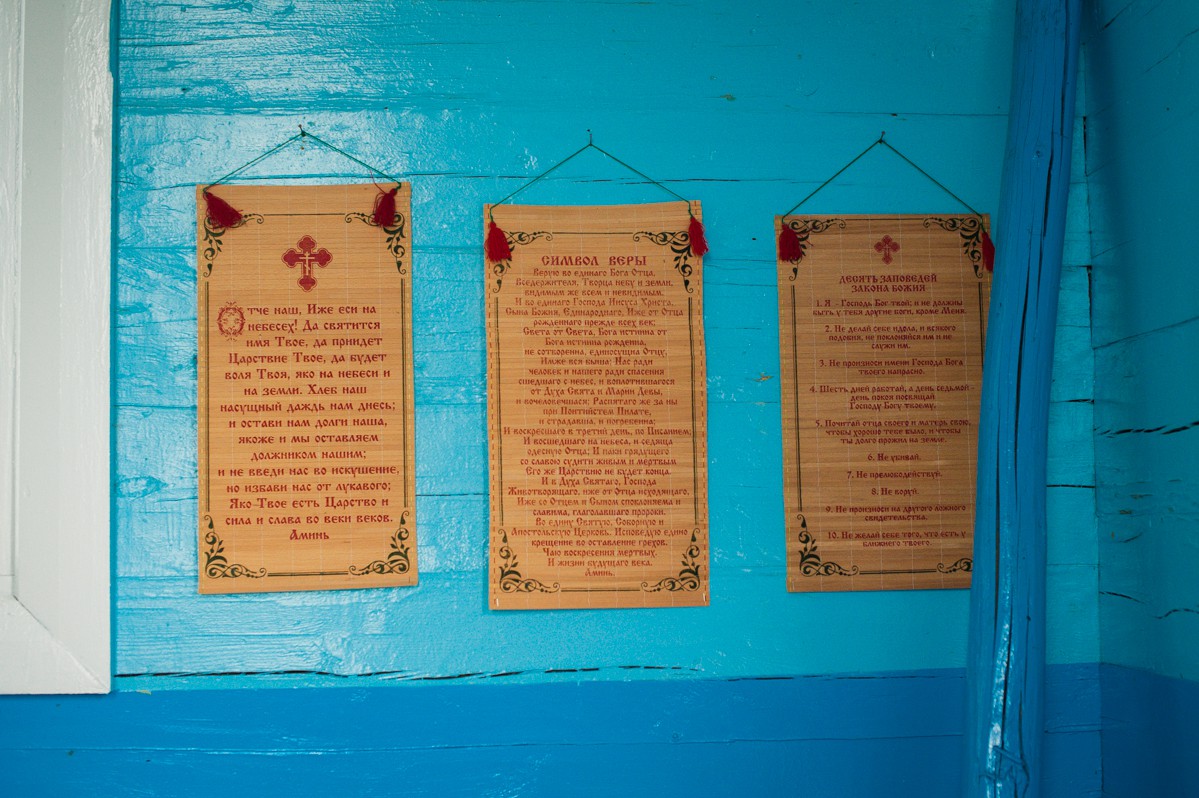 Отче наш, Иже еси на
небесех! Да святится
имя Твое, да приидет
Царствие Твое, да будет
воля Твоя, яко на небеси и
на земли. Хлеб наш
насущный даждь нам днесь;
и остави нам долги наша,
якоже и мы оставляем
должником нашим;
и не введи нас во искушение,
но избави нас от лукавого;
Яко Твое есть Царство и
сила и слава во веки веков.
Аминь
СИМВОЛ ВЕРЫ
Верую во единаго Бога Отца,
Вседержителя, Творца небу и земли,
видимым же всем и невидимым.
И во единаго Господа Иисуса Христа,
Сына Божия, Единароднаго, Иже от Отца
рожденнаго прежде всех век;
Света от Света, Бога истинна от
Бога истинна рожденна,
не сотворенна, единосущна Отцу,
Имже вся быша; Нас ради
человек и нашего ради спасения
сшедшаго с небес, и воплотившагося
от Духа Свята и Марии Девы,
и вочеловечшася; Распятаго же за ны
при Понтийстем Пилате,
и страдавша, и погребенна;
И воскресшаго в третий день, по Писанием;
И восшедшаго на небеса, и седяща
одесную Отца; И паки грядущего
со славою судити живым и мертвым
Его же Царствию не будет конца.
И в Духа Святаго, Господа
Животворящаго, иже от Отца исходящаго,
Иже со Отцем и Сыном споклоняема и
славима, глаголавшаго пророки.
Во едину Святую, Соборную и
Апостольскую Церковь. Исповедую едино
крещение во оставление грехов.
Чаю воскресения мертвых.
И жизни будущаго века.
Аминь.
ДЕСЯТЬ ЗАПОВЕДЕЙ
ЗАКОНА БОЖИЯ
1. Я - Господь Бог твой; и не должны
быть у тебя другие боги, кроме Меня.
2. Не делай себе идола, и всякого
подобия, не поклоняйся им и не
служи им.
3. Не произноси имени Господа Бога
твоего напрасно.
4. Шесть дней работай, а день седьмой -
день покоя посвящай
Господу Богу твоему.
5. Почитай отца своего и матерь свою,
чтобы хорошо тебе было, и чтобы
ты долго прожил на земле.
6. Не убивай.
7. Не прелюбодействуй.
8. Не воруй.
9. Не произноси на другого ложного
свидетельства.
10. Не желай себе того, что есть у
ближнего твоего.